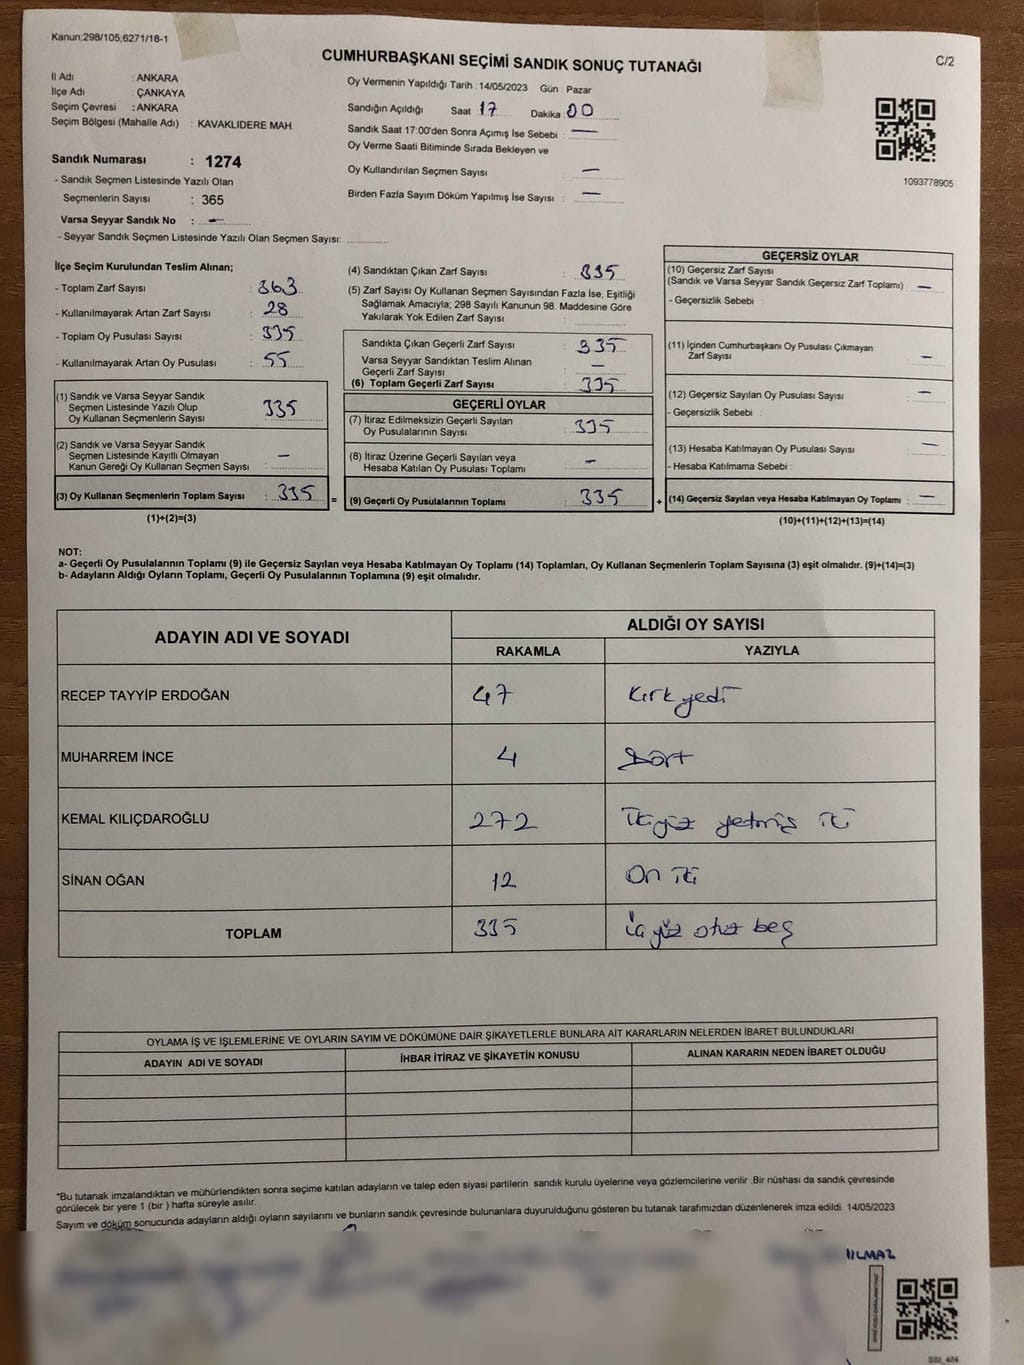 Kanun;298/105,6271/18-1
CUMHURBAŞKANI SEÇİMİ SANDIK SONUÇ TUTANAĞI
C/2
İl Adı : ANKARA
İlçe Adı : ÇANKAYA
Seçim Çevresi : ANKARA
Seçim Bölgesi (Mahalle Adı) : KAVAKLIDERE MAH.
Sandık Numarası : 1274
- Sandık Seçmen Listesinde Yazılı Olan
Seçmenlerin Sayısı : 365
Varsa Seyyar Sandık No : -
- Seyyar Sandık Seçmen Listesinde Yazılı Olan Seçmen Sayısı:
Oy Vermenin Yapıldığı Tarih : 14/05/2023 Gün : Pazar
Sandığın Açıldığı Saat 17 Dakika : 00
Sandık Saat 17:00'den Sonra Açımış İse Sebebi : —
Oy Verme Saati Bitiminde Sırada Bekleyen ve
Oy Kullandırılan Seçmen Sayısı : —
Birden Fazla Sayım Döküm Yapılmış İse Sayısı : —
1093778905
İlçe Seçim Kurulundan Teslim Alınan;
- Toplam Zarf Sayısı : 363
- Kullanılmayarak Artan Zarf Sayısı : 28
- Toplam Oy Pusulası Sayısı : 335
- Kullanılmayarak Artan Oy Pusulası : 55
(1) Sandık ve Varsa Seyyar Sandık
Seçmen Listesinde Yazılı Olup
Oy Kullanan Seçmenlerin Sayısı : 335
(2) Sandık ve Varsa Seyyar Sandık
Seçmen Listesinde Kayıtlı Olmayan
Kanun Gereği Oy Kullanan Seçmen Sayısı : —
(3) Oy Kullanan Seçmenlerin Toplam Sayısı : 335
(1)+(2)=(3)
=
(4) Sandıktan Çıkan Zarf Sayısı : 335
(5) Zarf Sayısı Oy Kullanan Seçmen Sayısından Fazla İse, Eşitliği
Sağlamak Amacıyla; 298 Sayılı Kanunun 98. Maddesine Göre
Yakılarak Yok Edilen Zarf Sayısı :
Sandıkta Çıkan Geçerli Zarf Sayısı : 335
Varsa Seyyar Sandıktan Teslim Alınan
Geçerli Zarf Sayısı : —
(6) Toplam Geçerli Zarf Sayısı : 335
GEÇERLİ OYLAR
(7) İtiraz Edilmeksizin Geçerli Sayılan
Oy Pusulalarının Sayısı : 335
(8) İtiraz Üzerine Geçerli Sayılan veya
Hesaba Katılan Oy Pusulası Toplamı : -
(9) Geçerli Oy Pusulalarının Toplamı : 335
+
GEÇERSİZ OYLAR
(10) Geçersiz Zarf Sayısı
(Sandık ve Varsa Seyyar Sandık Geçersiz Zarf Toplamı) : —
- Geçersizlik Sebebi :
(11) İçinden Cumhurbaşkanı Oy Pusulası Çıkmayan
Zarf Sayısı : —
(12) Geçersiz Sayılan Oy Pusulası Sayısı : —
- Geçersizlik Sebebi :
(13) Hesaba Katılmayan Oy Pusulası Sayısı : —
- Hesaba Katılmama Sebebi :
(14) Geçersiz Sayılan veya Hesaba Katılmayan Oy Toplamı : —
(10)+(11)+(12)+(13)=(14)
NOT:
a- Geçerli Oy Pusulalarının Toplamı (9) ile Geçersiz Sayılan veya Hesaba Katılmayan Oy Toplamı (14) Toplamları, Oy Kullanan Seçmenlerin Toplam Sayısına (3) eşit olmalıdır. (9)+(14)=(3)
b- Adayların Aldığı Oyların Toplamı, Geçerli Oy Pusulalarının Toplamına (9) eşit olmalıdır.
ADAYIN ADI VE SOYADI
ALDIĞI OY SAYISI
RAKAMLA YAZIYLA
RECEP TAYYİP ERDOĞAN 47 Kırk yedi
MUHARREM İNCE 4 Dört
KEMAL KILIÇDAROĞLU 272 İkiyüz yetmiş iki
SİNAN OĞAN 12 On iki
TOPLAM 335 üç yüz otuz beş
OYLAMA İŞ VE İŞLEMLERİNE VE OYLARIN SAYIM VE DÖKÜMÜNE DAİR ŞİKAYETLERLE BUNLARA AİT KARARLARIN NELERDEN İBARET BULUNDUKLARI
ADAYIN ADI VE SOYADI İHBAR İTİRAZ VE ŞİKAYETİN KONUSU ALINAN KARARIN NEDEN İBARET OLDUĞU
*Bu tutanak imzalandıktan ve mühürlendikten sonra seçime katılan adayların ve talep eden siyasi partilerin sandık kurulu üyelerine veya gözlemcilerine verilir .Bir nüshası da sandık çevresinde
görülecek bir yere 1 (bir ) hafta süreyle asılır.
Sayım ve döküm sonucunda adayların aldığı oyların sayılarını ve bunların sandık çevresinde bulunanlara duyurulduğunu gösteren bu tutanak tarafımızdan düzenlenerek imza edildi. 14/05/2023
YILMAZ